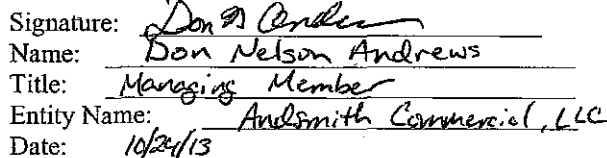 Signature: Don N Andrews
Name: Don Nelson Andrews
Title: Managing Member
Entity Name: Andsmith Commercial, LLC
Date: 10/24/13